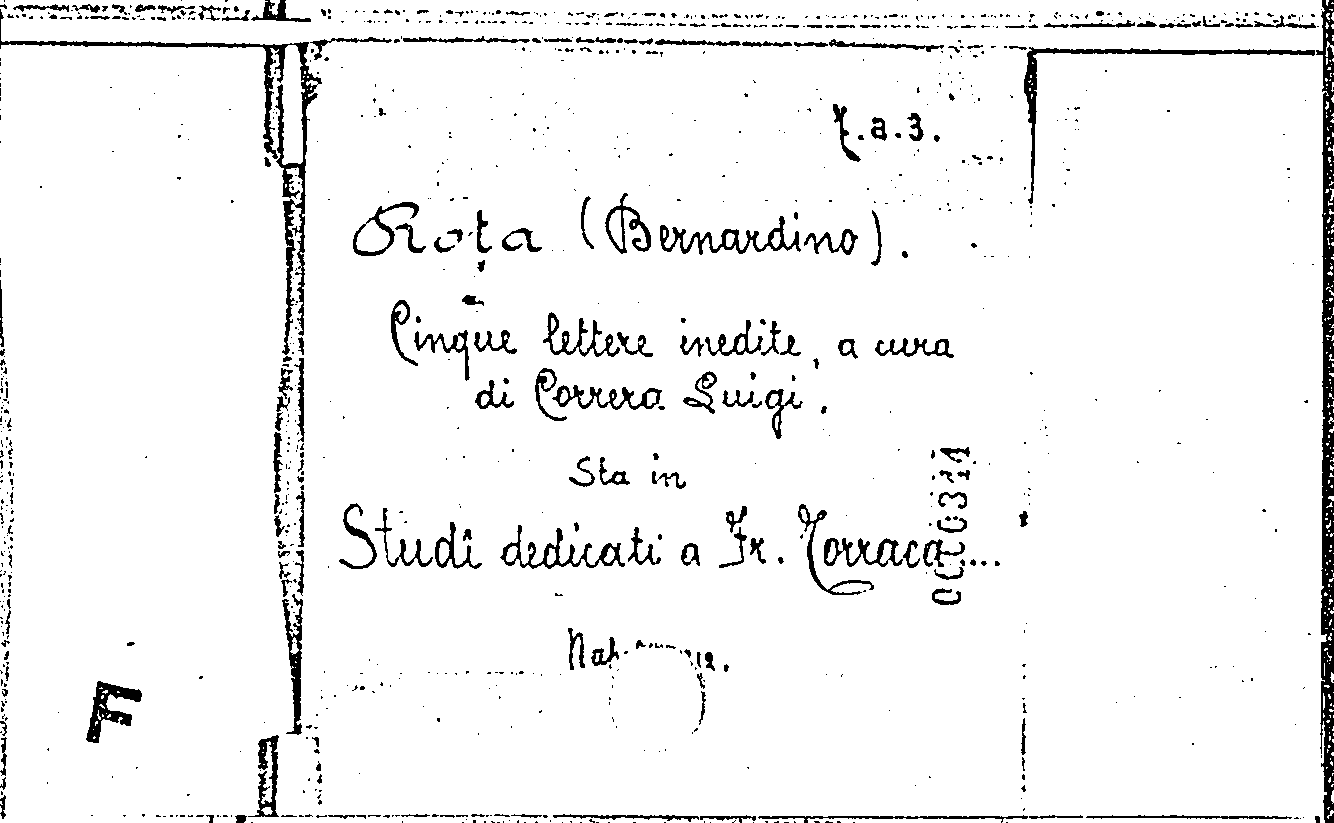 Z.a.3.
Rota (Bernardino).
Cinque lettere inedite, a cura
di Correra Luigi.
Sta in
Studî dedicati a Fr. Torraca....
F